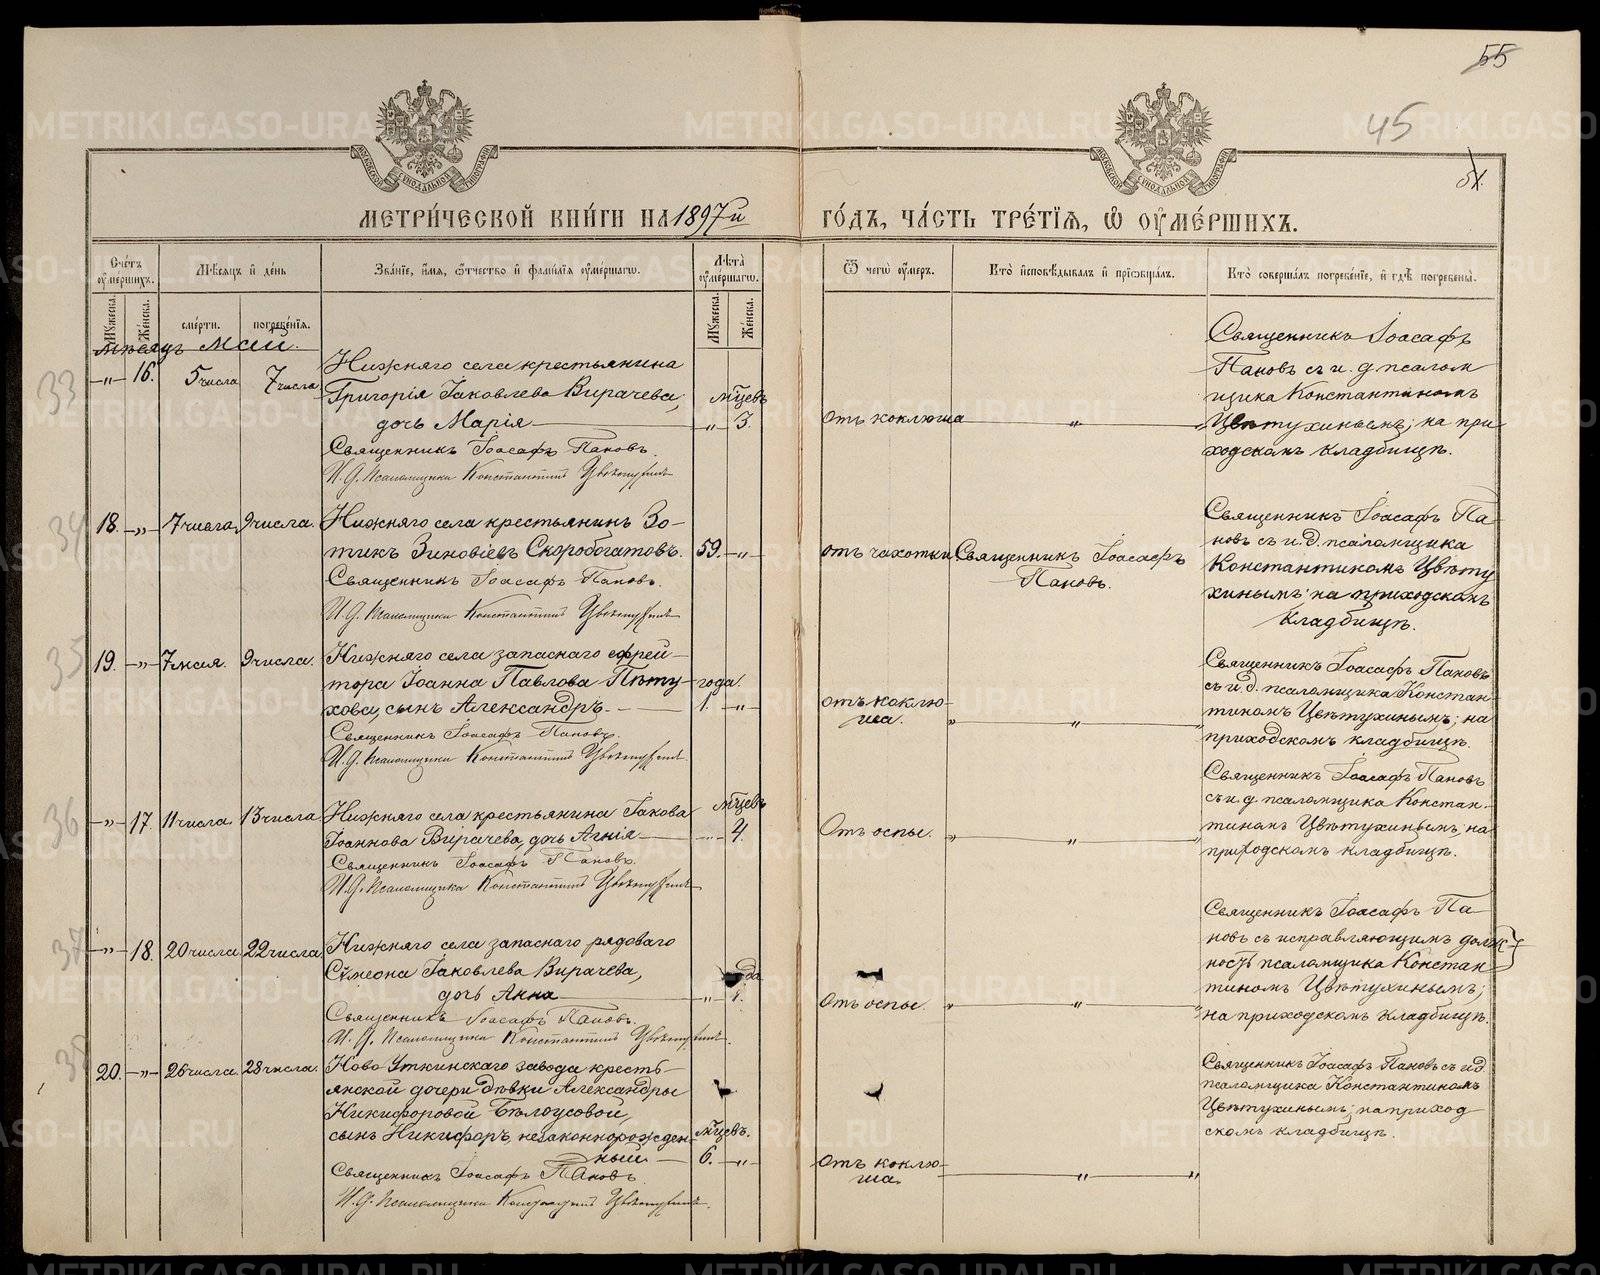 55
45
51.
МОСКОВСКОЙ СѴНОДАЛЬНОЙ ТИПОГРАФІИ
МОСКОВСКОЙ СѴНОДАЛЬНОЙ ТИПОГРАФІИ
МЕТРИ́ЧЕСКОЙ КНИ́ГИ НА 1897й ГО́ДЪ, ЧА́СТЬ ТРЕ́ТЇѦ, Ѡ҆ ОУ҆МЕ́РШИХЪ.
Сче́тъ оу҆ме́ршихъ.
Мѣ́сяцъ и҆ де́нь
Зва́нїе, и҆́мя, ѻ҆́тчество и҆ фамилїя оу҆ме́ршагѡ.
Лѣ́та оу҆ме́ршагѡ.
Ѿ чегѡ̀ оу҆́меръ.
Кто̀ и҆сповѣ́дывалъ и҆ прїѡбща́лъ.
Кто̀ соверша́лъ погребе́нїе, и҆ гдѣ̀ погребены̀.
Мꙋ́жеска.
Же́нска.
сме́рти.
погребе́нїя.
Мꙋ́жеска.
Же́нска.
мѣсяцъ Май.
33
—„— 16. 5 числа 7 числа
Нижняго села крестьянина
Григорія Іаковлева Вирачева,
дочь Марія
Священникъ Іоасафъ Пановъ.
И. д. Псаломщика Константинъ Цвѣтухинъ
мѣсцевъ
„ 3.
отъ коклюша „ „
Священникъ Іоасафъ
Пановъ съ и. д. псалом
щика Константиномъ
Цвѣтухинымъ; на при
ходскомъ кладбищѣ.
34
18. —„— 7 числа 9 числа.
Нижняго села крестьянинъ Зо-
тикъ Зиновіевъ Скоробогатовъ.
Священникъ Іоасафъ Пановъ.
И. д. Псаломщика Константинъ Цвѣтухинъ
59. —„—
отъ чахотки
Священникъ Іоасафъ
Пановъ.
Священникъ Іоасафъ Па-
новъ съ и. д. псаломщика
Константиномъ Цвѣту
хинымъ; на приходскомъ
кладбищѣ.
35
19. —„— 7 мая. 9 числа.
Нижняго села запаснаго ефрей-
тора Іоанна Павлова Пѣту-
хова, сынъ Александръ.
Священникъ Іоасафъ Пановъ.
И. д. Псаломщика Константинъ Цвѣтухинъ
года.
1. —„—
отъ коклю-
ша. „ „ „
Священникъ Іоасафъ Пановъ
съ и. д. псаломщика Констан-
тиномъ Цвѣтухинымъ; на
приходскомъ кладбищѣ.
36
—„— 17. 11 числа. 13 числа
Нижняго села крестьянина Іакова
Іоаннова Вирачева, дочь Агнія
Священникъ Іоасафъ Пановъ.
И. д. Псаломщика Константинъ Цвѣтухинъ
мѣсцевъ
—„— 4.
Отъ оспы. „ „ „
Священникъ Іоасафъ Пановъ
съ и. д. псаломщика Констан-
тиномъ Цвѣтухинымъ; на
приходскомъ кладбищѣ.
37
—„— 18. 20 числа. 22 числа
Нижняго села запаснаго рядоваго
Сѵмеона Іаковлева Вирачева,
дочь Анна
Священникъ Іоасафъ Пановъ.
И. д. Псаломщика Константинъ Цвѣтухинъ.
„ 1.
Отъ оспы. „ „ „
Священникъ Іоасафъ Па-
новъ съ исправляющимъ долж-
ность псаломщика Констан
тиномъ Цвѣтухинымъ;
на приходскомъ кладбищѣ.
38
20. —„— 26 числа. 28 числа.
Ново Уткинскаго завода кресть-
янской дочери дѣвки Александры
Никифоровой Бѣлоусовой,
сынъ Никифоръ, незаконнорожден-
ный.
Священникъ Іоасафъ Пановъ.
И. д. Псаломщика Константинъ Цвѣтухинъ.
мѣсцевъ.
6. —„—
Отъ коклю-
ша. „ „
Священникъ Іоасафъ Пановъ съ и.д.
псаломщика Константиномъ
Цвѣтухинымъ; на приход
скомъ кладбищѣ.
METRIKI.GASO-URAL.RU